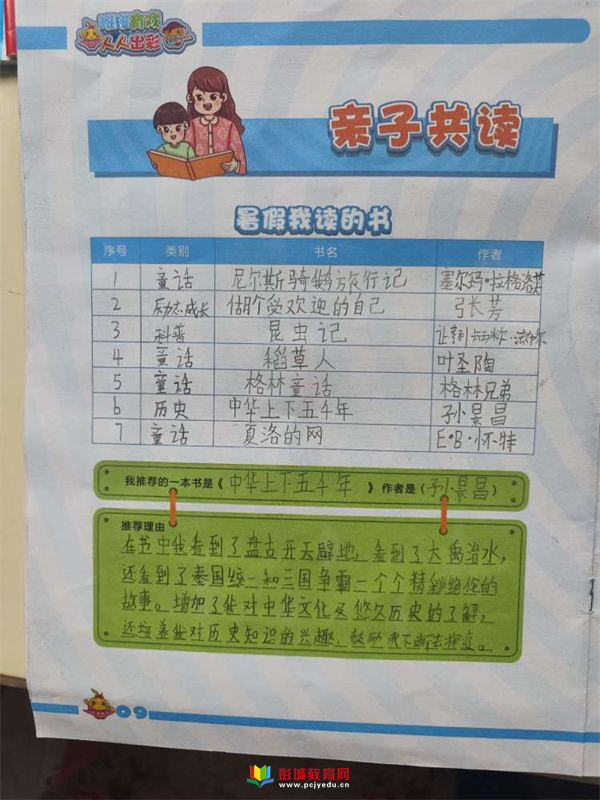 班班有戏
人人出彩
亲子共读
暑假我读的书
序号 类别 书名 作者
1 童话 尼尔斯骑鹅旅行记 塞尔玛·拉格洛芙
2 励志成长 做个受欢迎的自己 张芳
3 科普 昆虫记
4 童话 稻草人 叶圣陶
5 童话 格林童话 格林兄弟
6 历史 中华上下五千年 孙景昌
7 童话 夏洛的网 E·B·怀特
我推荐的一本书是《中华上下五千年》作者是(孙景昌)
推荐理由
在书中我看到了盘古开天辟地,看到了大禹治水,
还看到了秦国统一和三国争霸一个个精彩绝伦的
故事。增加了我对中华文化及悠久历史的了解,
还培养我对历史知识的兴趣,鼓励我不断去探究。
09
彭城教育网
www.pcjyedu.cn